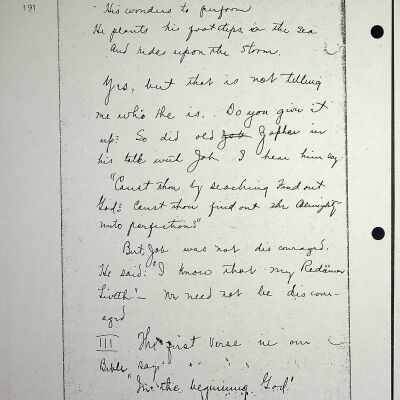 191
His wonders to perform
He plants his footsteps in the sea
And rides upon the storm.
Yes, but that is not telling
me who he is.. Do you give it
up? So did old Job Zophar in
his talk with Job I hear him say
"Canst thou by searching find out
God? Canst thou find out the Almighty
unto perfection?"
But, Job was not discouraged.
He said: "I know that my Redeemer
Liveth"- We need not be discour-
aged
III The first verse in our
Bible say:
"In the beginning God"